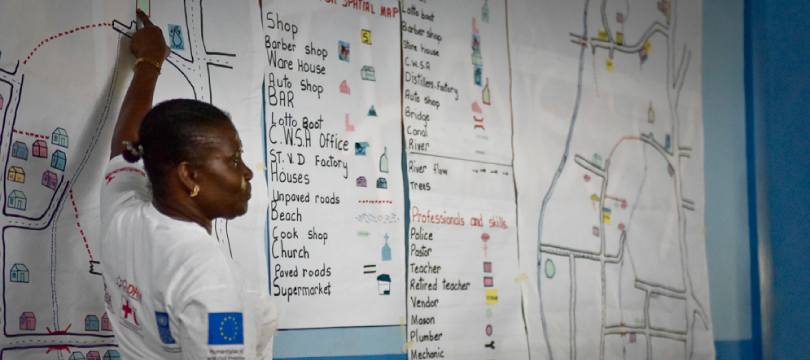 SPATIAL MAP
Shop
Barber shop
Ware House
Auto Shop
BAR
Lotto Boot
C.W.S.A Office
ST. V.D Factory
Houses
Unpaved roads
Beach
Cook shop
Church
Paved roads
Supermarket
$
Lotto boat
Barber shop
Store house
C.W.S.A
Distillers Factory
Auto shop
Bridge
Canal
River
River flow
Trees
Professionals and skills
Police
Pastor
Teacher
Retired teacher
Vendor
Mason
Plumber
Mechanic